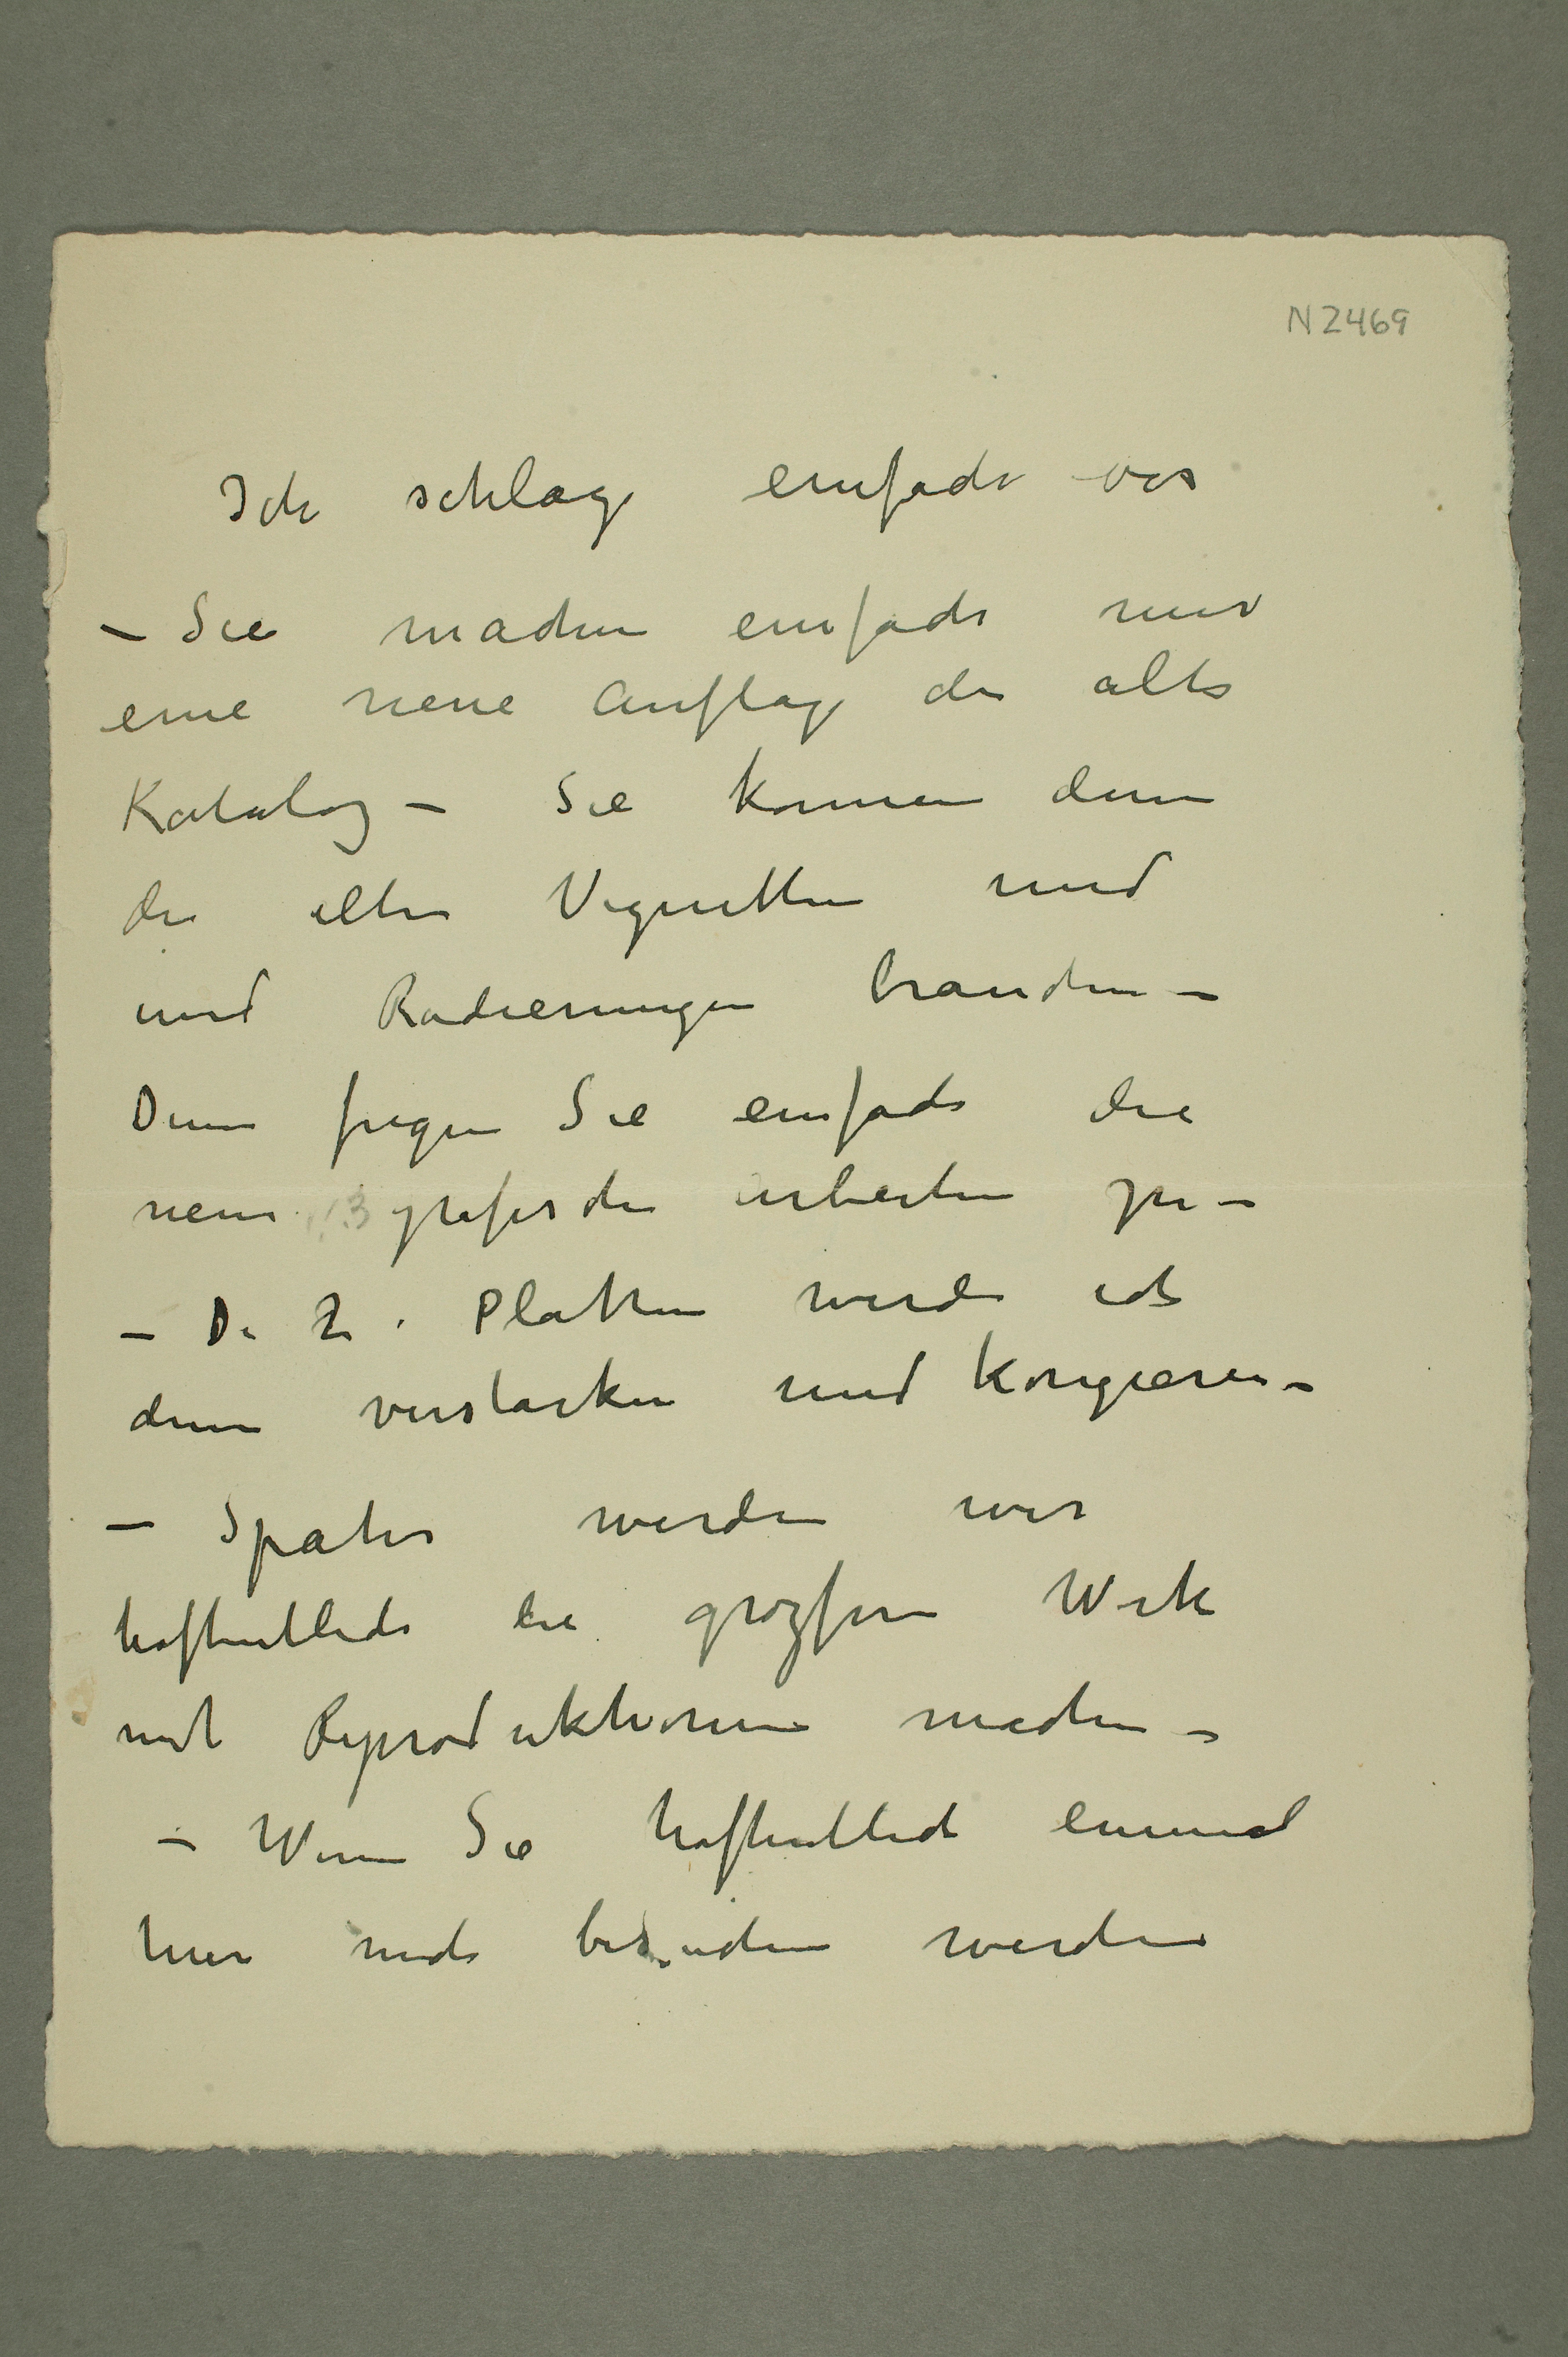 N 2469
Ich schlage einfach vor
– Sie machen einfach nur
eine neue Auflage der alte
Katalog – Sie konnen denn
die alten Vignetten und
und Radierungen brauchen –
Denn fügen Sie einfach die
neuen grafischen arbeiten zu –
– Die 2 Platten werde ich
denn verstarken und korrigieren –
– Später werden wir
hoffentlich die grozsern Werk
mit Reproduktionen machen –
– Wenn Sie hoffentlich einmal
hier mich besuchen werden